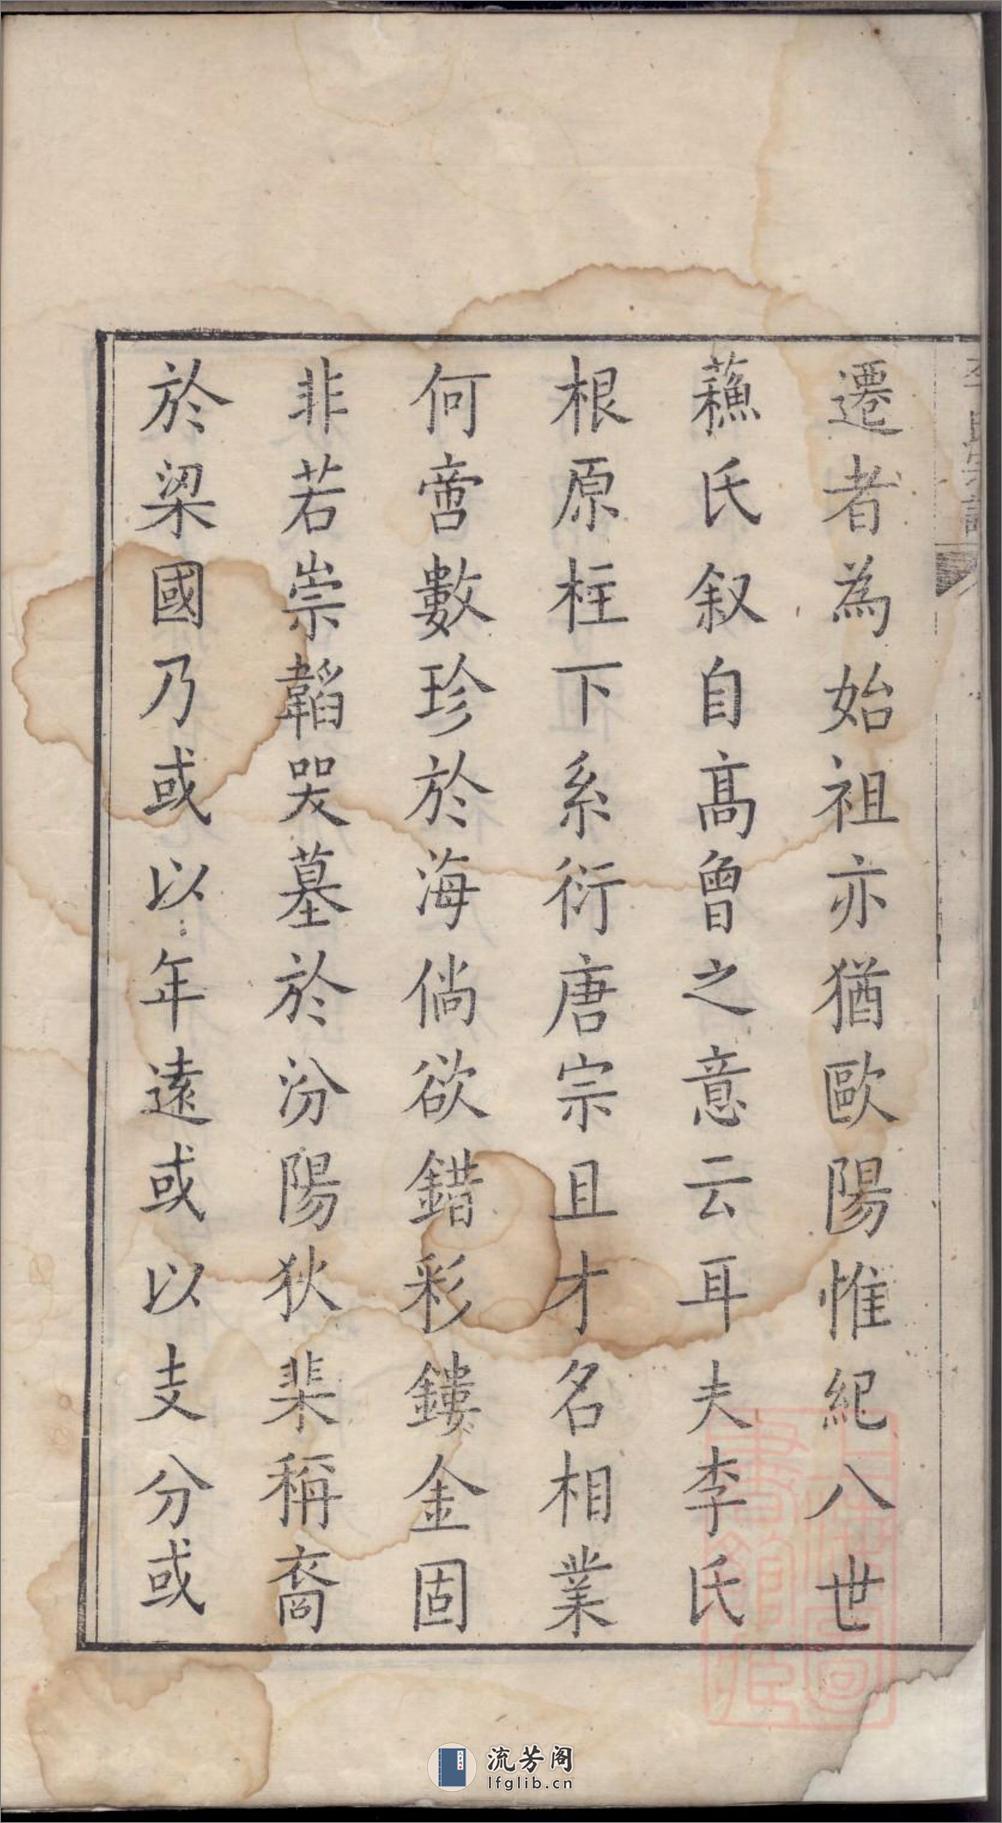 遷者為始祖亦猶歐陽惟紀八世
蘓氏叙自髙曾之意云耳夫李氏
根原柱下系衍唐宗且才名相業
何啻數珍於海倘欲錯彩鏤金固
非若崇韜哭墓於汾陽狄棐稱裔
於梁國乃或以年遠或以支分或
流芳阁
lfglib.cn